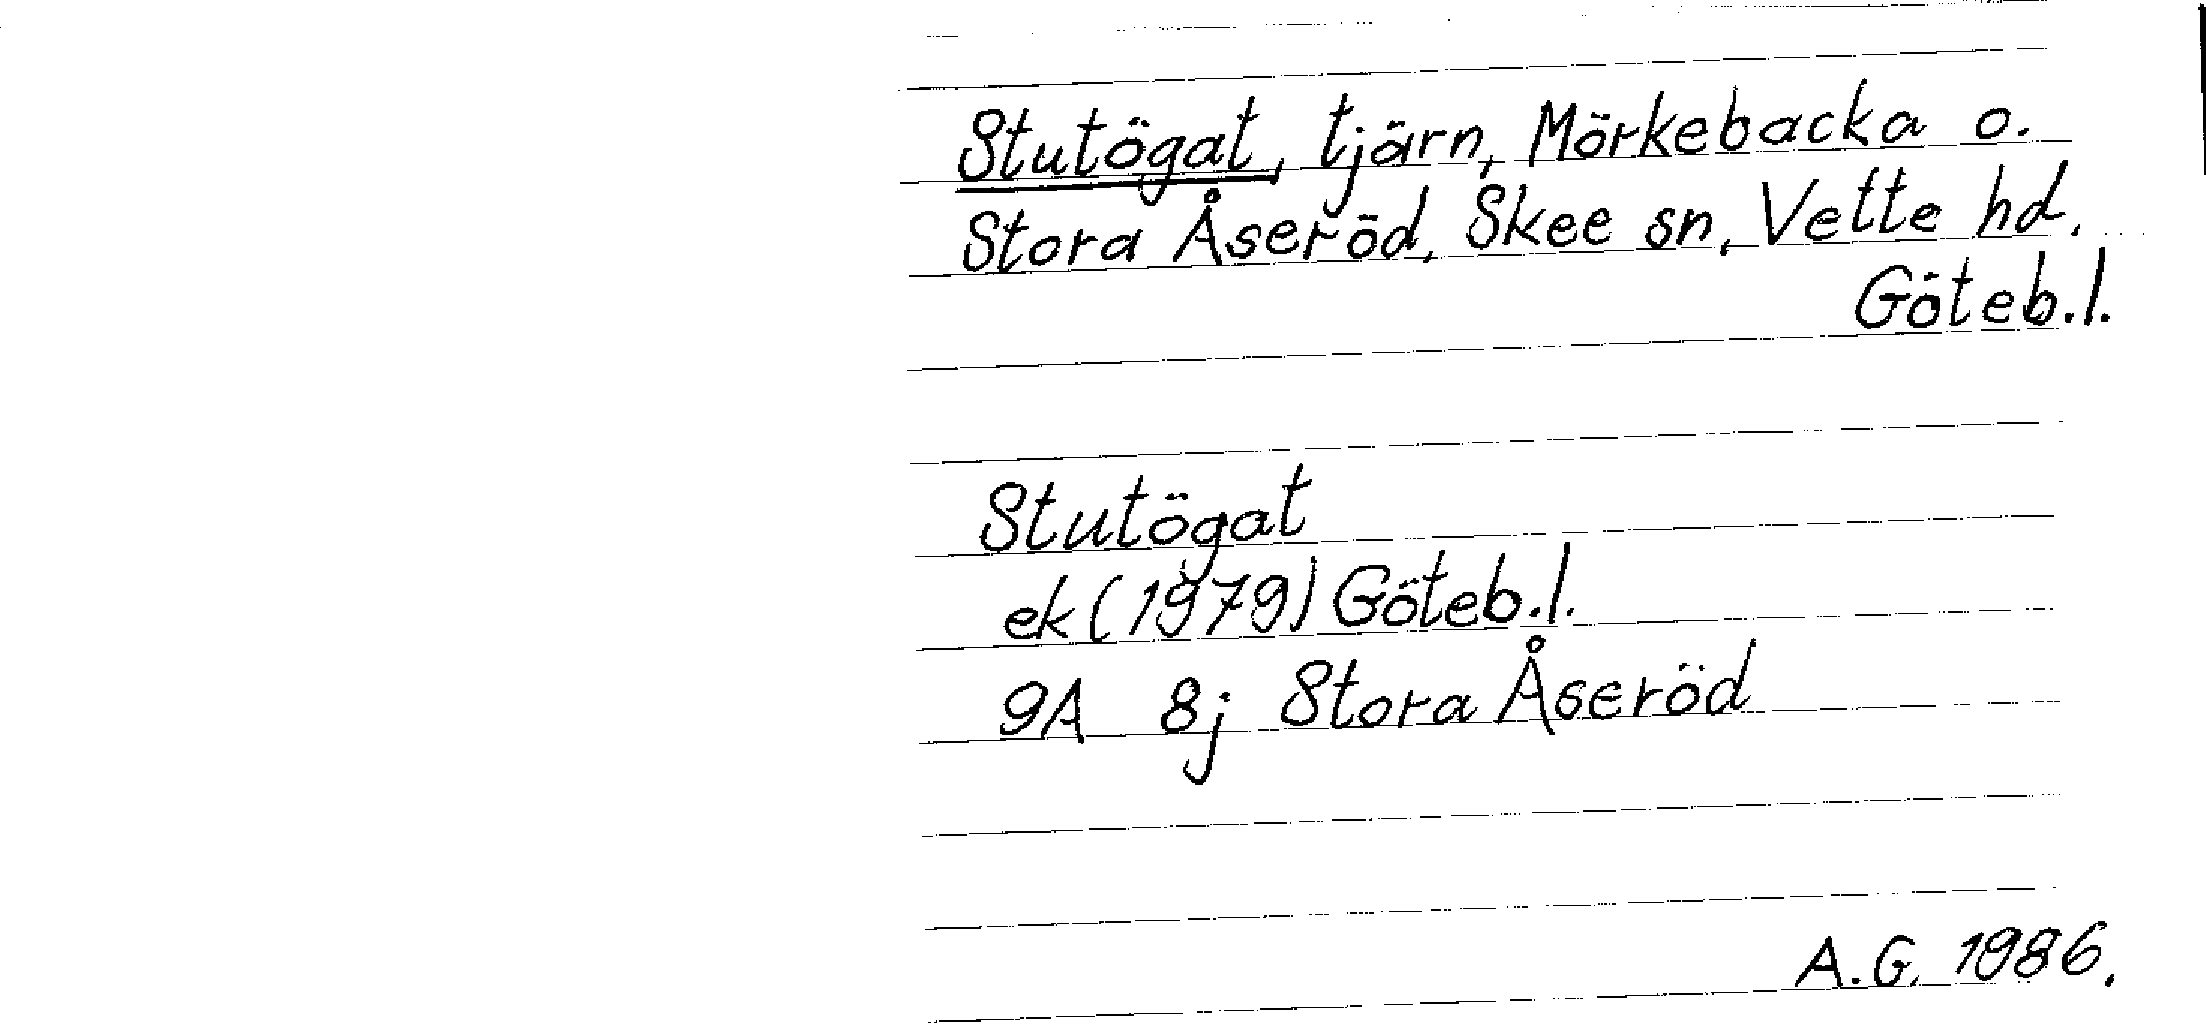 Stutögat, tjärn, Mörkebacka o.
Stora Åseröd, Skee sn, Vette hd.
Göteb.l.
Stutögat
ek (1979) Göteb.l.
9A 8j Stora Åseröd
A.G. 1986.